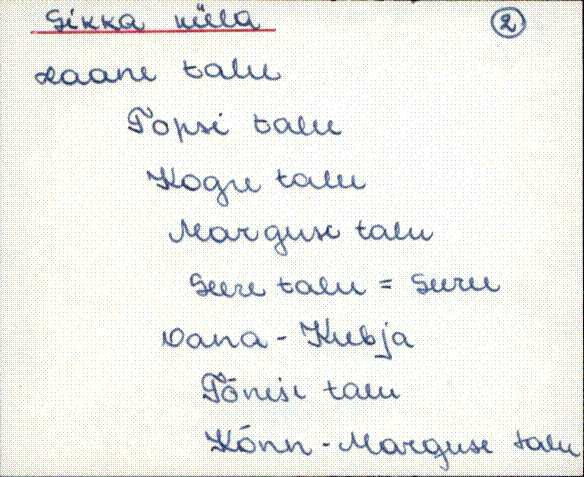 Sikka küla ②
Laane talu
Topsi talu
Kogu talu
Marguse talu
Suure talu = Suru
Vana-Kubja
Tõnise talu
Kõnn-Marguse talu